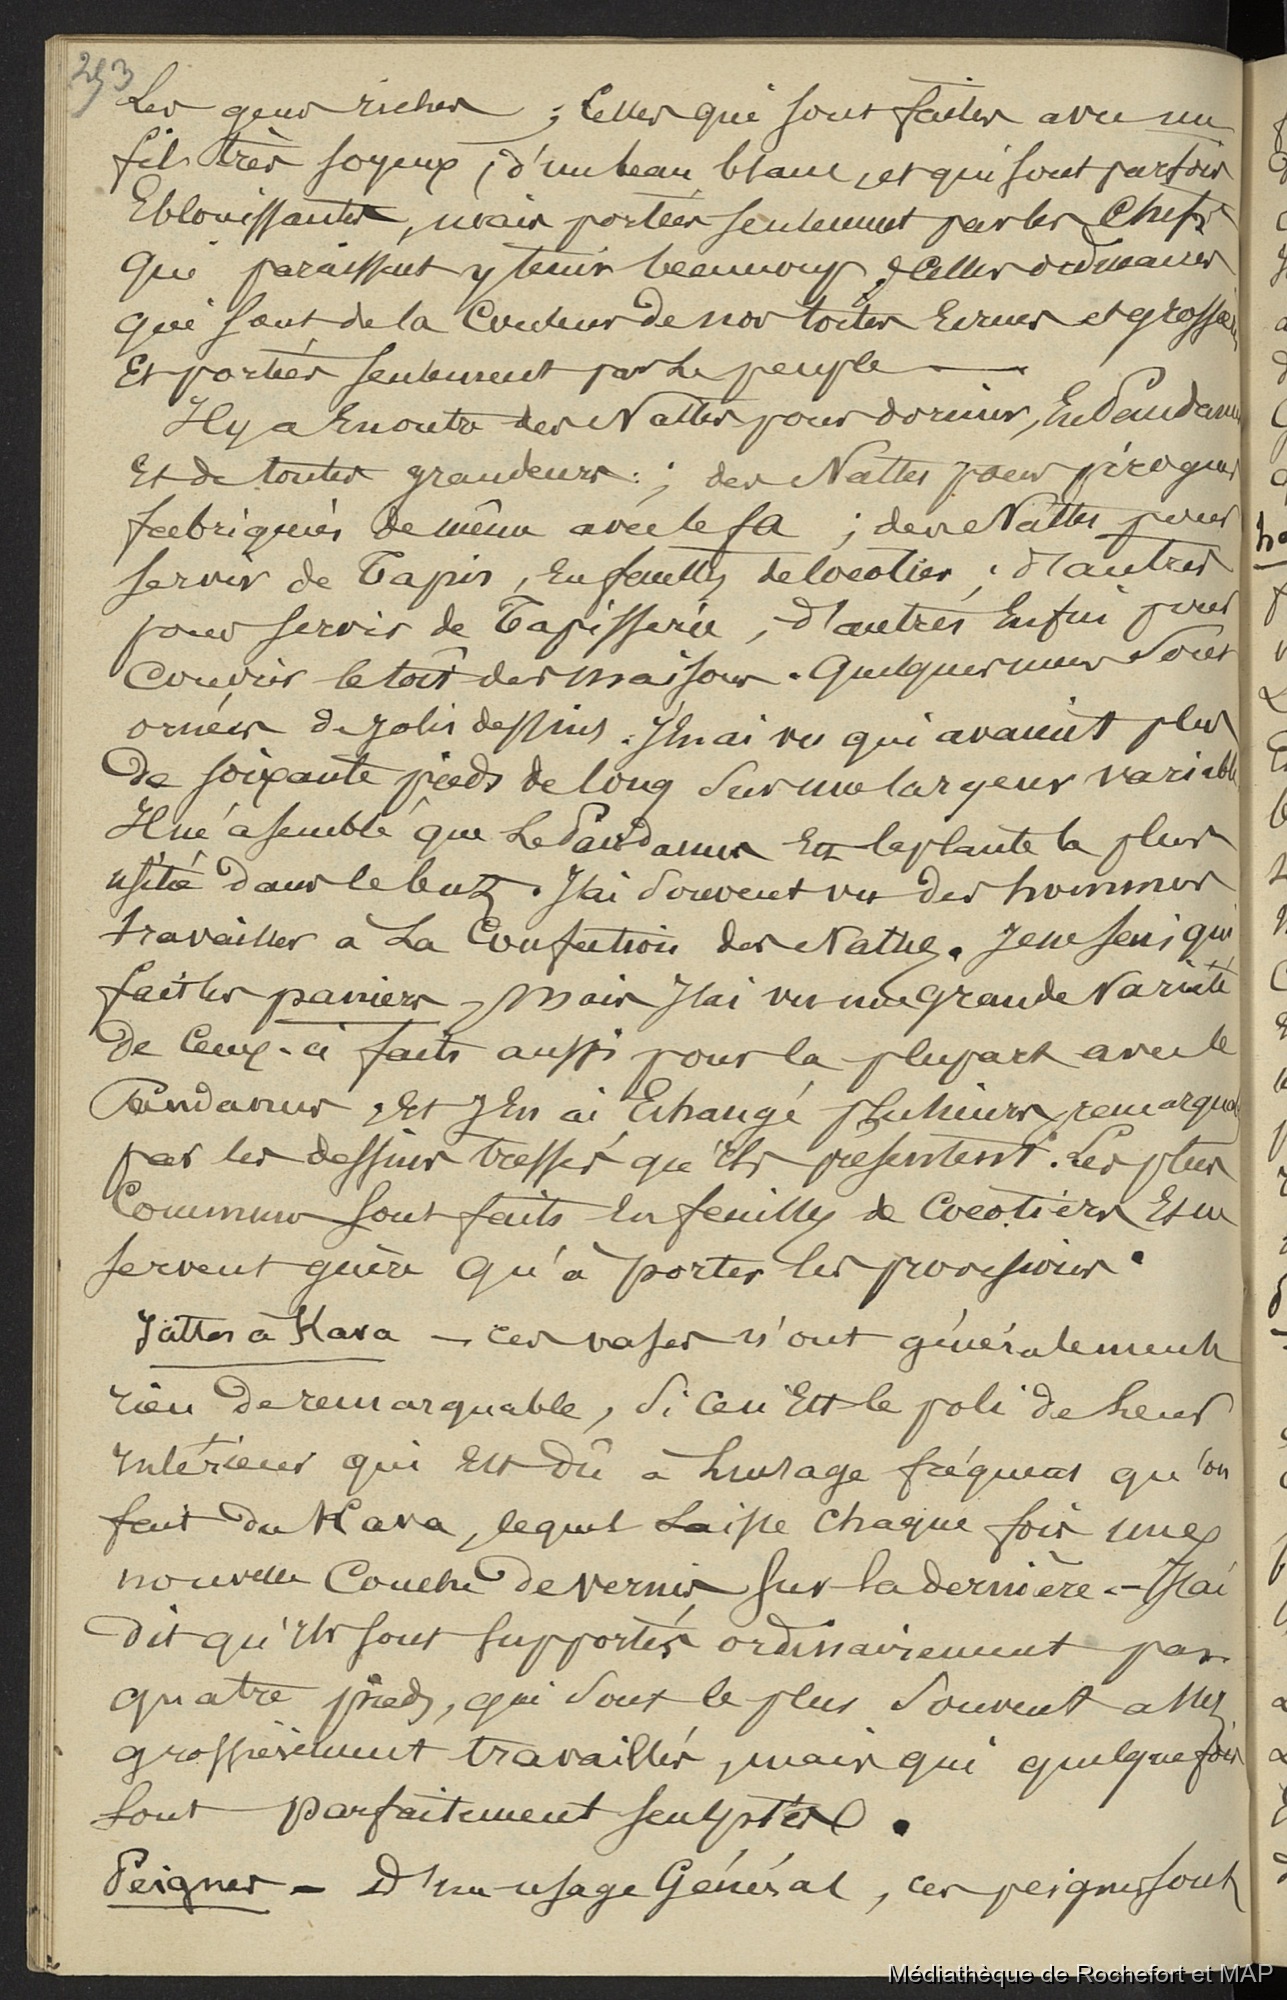 253
Les gens riches ; Celles qui sont faites avec un
fil très soyeux, d'un beau blanc, et qui sont parfois
Eblouissantes, mais portées seulement par les Chefs
qui paraissent y tenir beaucoup, & Celles ordinaires
qui sont de la Couleur de nos toiles Ecrues et grossières
Et portées seulement par le peuple —
Il y a En outre des Nattes pour dormir, En Pandanus
Et de toutes grandeurs ; des Nattes pour pirogues
fabriquées de même avec le fa ; des Nattes pour
servir de Tapis, En feuilles de Cocotier ; d'autres
pour servir de Tapisserie, d'autres Enfin pour
Couvrir le toît des maisons. Quelques unes Sont
ornées de jolis dessins. J'En ai vu qui avaient plus
de soixante pieds de long Sur une largeur variable
Il m'a semblé que Le Pandanus Est la plante la plus
usitée Dans le but. J'ai Souvent vu des hommes
travailler à La Confection des Nattes. Je ne sais qui
fait les paniers, Mais J'ai vu une grande Variété
de Ceux-ci faits aussi pour la plupart avec le
Pandanus, Et J'En ai Echangé plusieurs, remarqua
par les dessins tressés qu'ils présentent. Les plus
Communs Sont faits En feuilles de Cocotiers Et ne
servent guère qu'à porter les provisions.
Jattes à Kava — ces vases n'ont généralement
rien De remarquable, Si ce n'Est le poli de Leur
intérieur qui Est Dû à L'usage fréquent qu'on
fait Du Kava, lequel Laisse Chaque fois une
nouvelle Couche de vernis Sur la dernière. — J'ai
dit qu'ils sont supportés ordinairement par
quatre pieds, qui Sont le plus Souvent assez
grossièrement travaillés, mais qui quelquefois
Sont parfaitement sculptés.
Peignes — D'un usage Général, ces peignes sont
Médiathèque de Rochefort et MAP